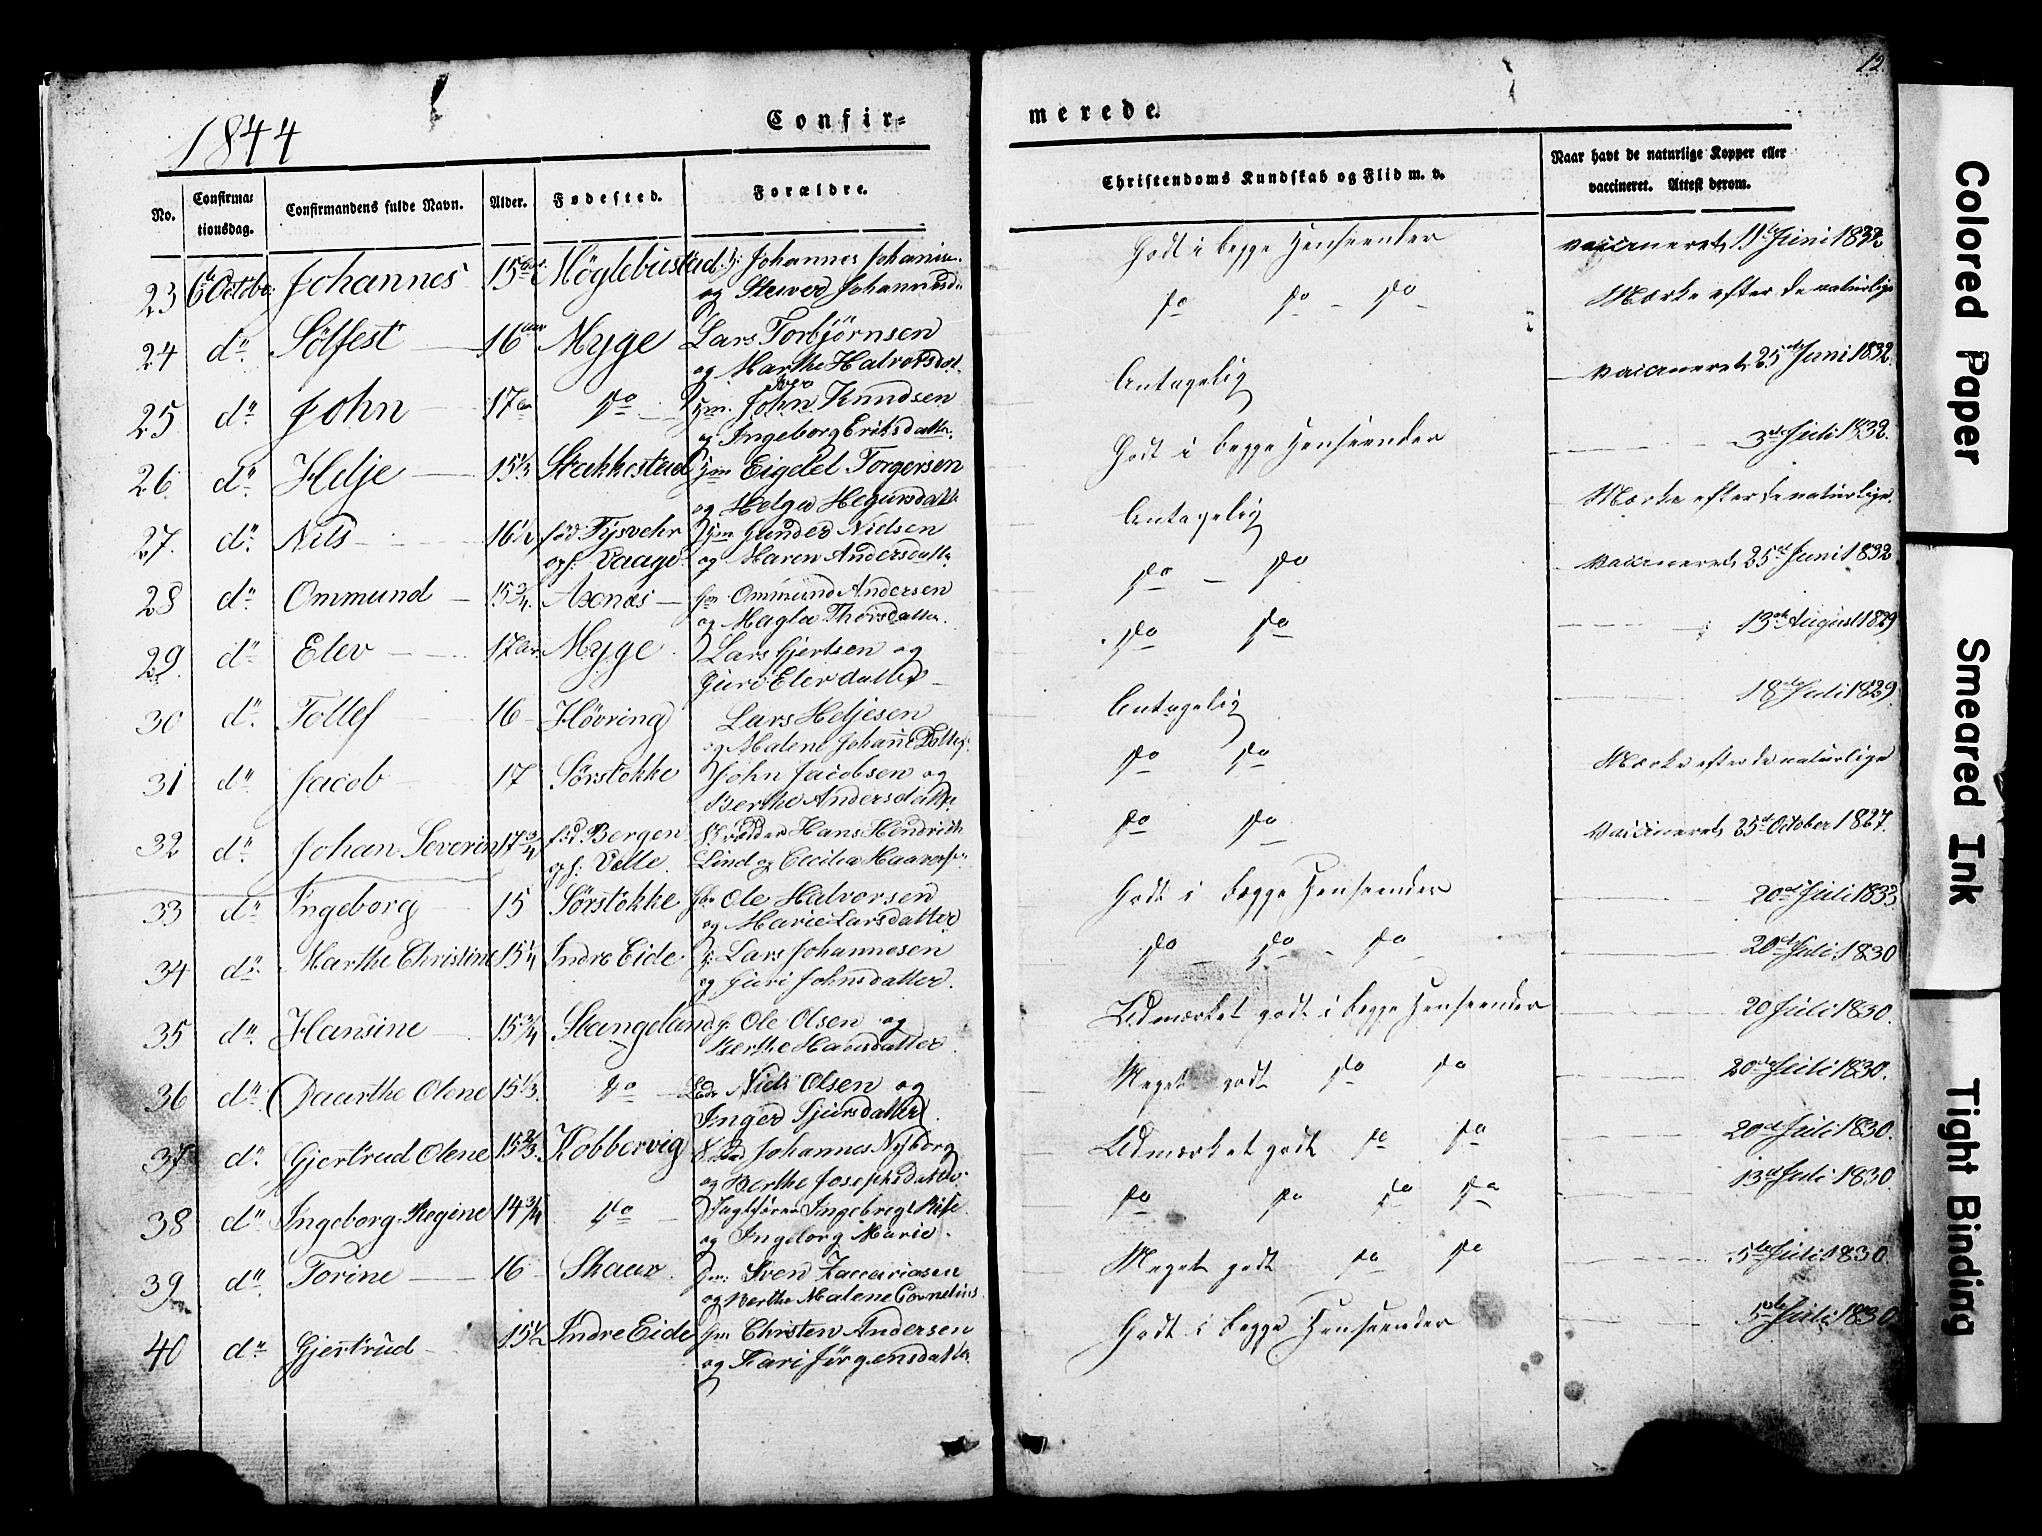 12
1844
Confir=
merede.
No.
Confirma=
tionsdag.
Confirmandens fulde Navn.
Alder.
Fødested.
Forældre.
Christendoms Kundskab og Flid m. v.
Naar havt de naturlige Kopper eller
vaccineret. Attest derom.
23 6te October Johannes 15 aar Möglebustad Johannes
og Johannesd
Godt i begge Henseender vaccineret 11te Juni 1832
24 do Sölfest 16 aar Myge Lars Torbjörnsen
og Marthe Halvorsdat
do do - do Mærke efter de naturlige
25 do John 17 do Gm. John Knudsen
og Ingeborg Eriksdatter.
Antagelig vaccineret 25de Juni 1832.
26 do Helje 15 1/3 Stakkestad Gm Eigdel Torgersen
og Helga
Godt i begge Henseender 3de Juli 1832.
27. do Nils 16 1/2 föd: Tysvehr Gm Gunder Nielsen
opf: Vaage og Maren Andersdatter
Antagelig Mærke efter de naturlige.
28 do Ommund 15 3/4 Axnæs Gm Ommund Andersen
og Magla Thorsdatter.
do - do vaccineret 25de Juni 1832
29 do Elev 17 aar Myge Lars Gjertsen og
Guri Elevdatter
do do 13de August 1829
30 do Tollef 16 Hövring Lars Heljesen
og Malene Johanne
Antagelig 18de Juli 1829.
31 do Jacob 17 Sörstokke John Jacobsen og
Berthe Andersdatter
do do Mærke efter de naturlige
32 do Johan Severin 17 3/4 föd: Bergen Hans Hendrich
opf: Velle. Lind og Cecilia
do do vaccineret 25de October 1827.
33 do Ingeborg 15 Sörstokke Ole Halvorsen
og Marie Larsdatter
Godt i begge Henseender 20de Juli 1833
34 do Marthe Christine 15 1/4 Indre Eide Lars Johannesen
og Guri Johnsdatter.
do - do - do 20de Juli 1830
35 do Hansine 15 3/4 Stangeland Ole Olsen og
Berthe Hansdatter
Udmærket godt i begge Henseender 20 Juli 1830.
36 do Daarthe Olene 15 1/3. do Niels Olsen og
Inger Sjursdatter.
Meget godt do do 20de Juli 1830.
37 do Gjertrud Olene 15 2/3 Kobbervig Johannes Nyborg
og Berthe Josephsdatter
Udmærket godt do do 20de Juli 1830.
38 do Ingeborg Regine 14 3/4 do Ingebregt
og Ingeborg Marie.
do do do do 13de Juli 1830.
39 do Torine 16 Skaar Gm: Sven Zaccariasen
og Berthe Malene Cornelius
Meget godt do do 5te Juli 1830.
40 do Gjertrud 15 1/2 Indre Eide Gm Christen Andersen
og Kari Jörgensdatter
Godt i begge Henseender Juli 1830
Colored Paper
Smeared Ink
Tight Binding